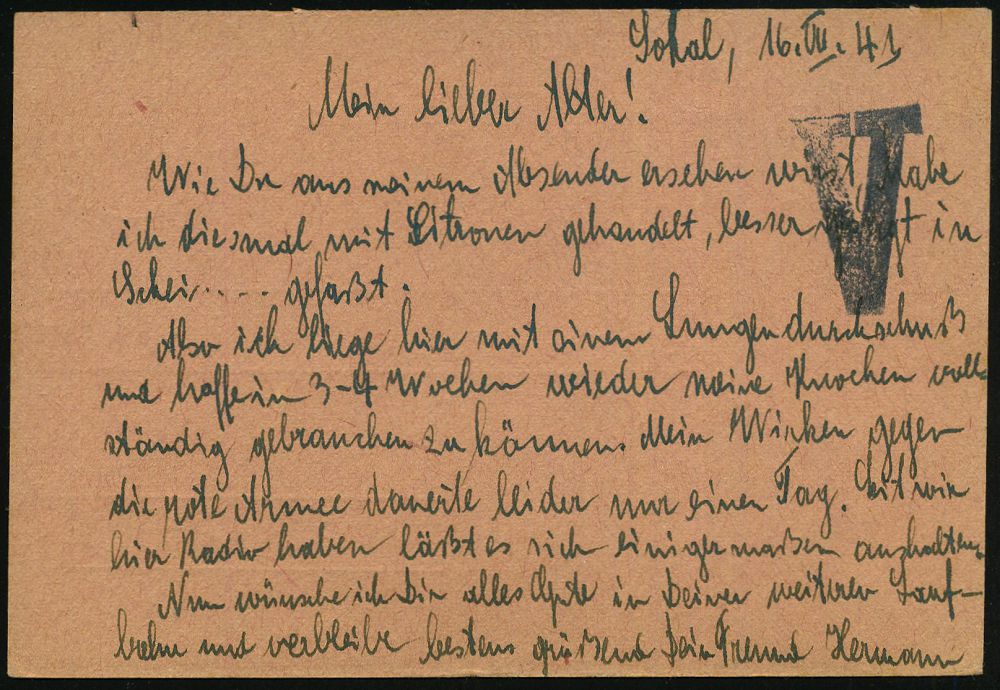 Sokal, 16. VII. 41
Mein lieber Alter!
Wie Du aus meinem Absender ersehen wirst habe
ich diesmal mit Zitronen gehandelt, besser gesagt in
Schei.... gefaßt.
Also ich liege hier mit einem Lungendurchschuß
und hoffe in 3-4 Wochen wieder meine Knochen voll-
ständig gebrauchen zu können. Mein Wirken gegen
die rote Armee dauerte leider nur einen Tag. Seit wir
hier Radio haben läßt es sich einigermaßen aushalten.
Nun wünsche ich Dir alles Gute in Deiner weiteren Lauf-
bahn und verbleibe bestens grüßend Dein Freund Hermann